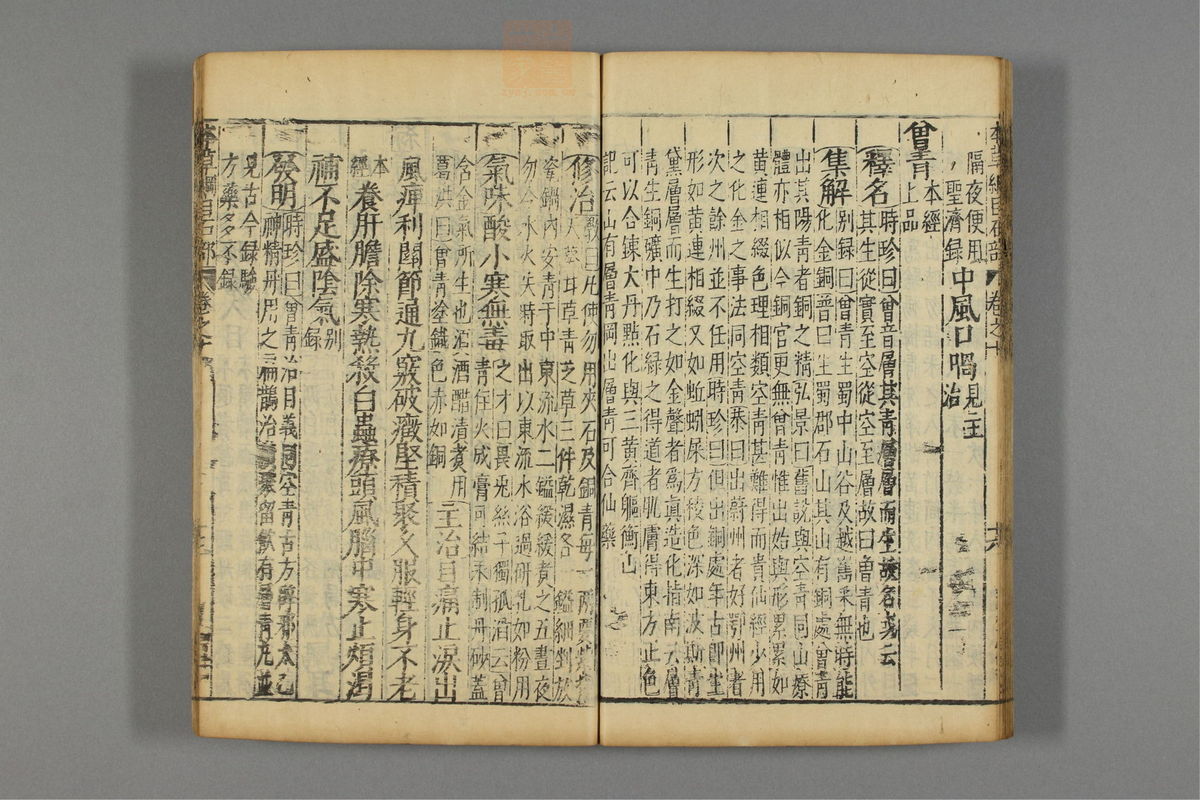 隔夜便用
聖濟錄
中風口喎
見主
治
曾青
本經
上品
釋名
時珍曰曾音層其青層層而生故名或云
其生從實至空從空至層故曰曾青也
集解
別録曰曾青生蜀中山谷及越巂采無時能
化金銅普曰生蜀郡石山其山有銅處曾青
出其陽青者銅之精弘景曰舊說與空青同山療
體亦相似今銅官更無曾青惟出始興形累累如
黄連相綴色理相類空青甚難得而貴仙經少用
之化金之事法同空青恭曰出蔚州者好鄂州者
次之餘州並不任用時珍曰但出銅處年古即生
形如黄連相綴又如蚯蚓屎方稜色深如波斯青
黛層層而生打之如金聲者爲真造化指南云層
青生銅礦中乃石緑之得道者肌膚得東方正色
可以合鍊大丹點化與三黄齊驅衡山
記云山有層青岡出層青可合仙藥
修治
斆曰凡使勿用夾石及銅青每一兩要紫背
天葵甘草青芝草三件乾濕各一鎰細剉放
瓷鍋内安青于中東流水二鎰緩緩煮之五晝夜
勿令水火失時取出以東流水浴過研乳如粉用
氣味酸小寒無毒
之才曰畏兔絲子獨孤滔云曾
青住火成膏可結汞制丹砂蓋
含金氣所生也須酒醋漬煮用
葛洪曰曾青塗鐵色赤如銅
主治目痛止淚出
風痺利關節通九竅破癥堅積聚久服輕身不老
本
經
養肝膽除寒熱殺白蟲療頭風腦中寒止煩渴
補不足盛陰氣
别
録
發明
時珍曰曾青治目義同空青古方辟邪太乙
神精丹用之扁鵲治積聚留飲有層青丸並
見古今録驗
方藥多不録
本草綱目石部
卷之十